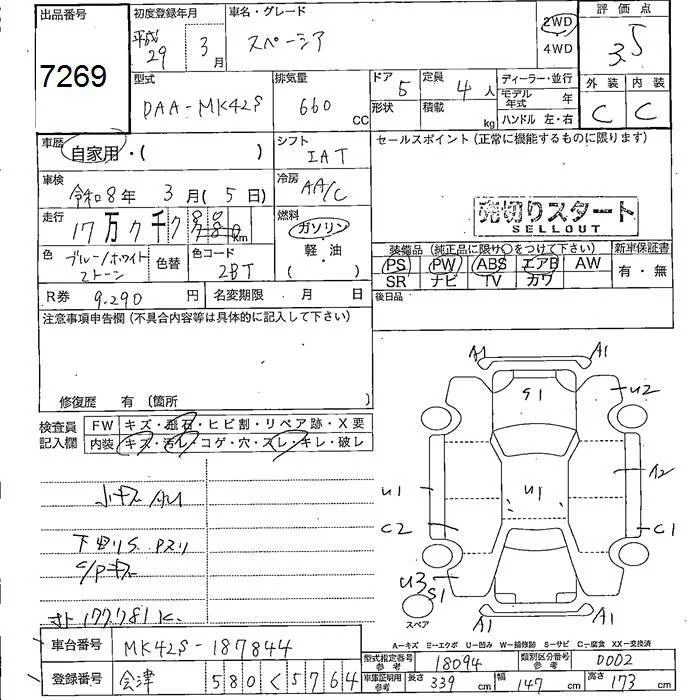 出品番号
7269
初度登録年月
平成 29 年 3 月
車名・グレード
スペーシア
2WD
4WD
評価点
3.5
外装 内装
C C
型式
DAA-MK42S
排気量
660 CC
ドア 5
形状
定員 4 人
積載 kg
ディーラー・並行
モデル年式 年
ハンドル 左・右
車歴 自家用・( )
シフト
IAT
セールスポイント(正常に機能するものに限ります)
売切りスタート
SELLOUT
車検 令和8年 3月(5日)
冷房 AA/C
走行 17万7千7 km
燃料
ガソリン
軽・油
( )
色 ブルー/ホワイト2トーン
色替
色コード
2BT
装備品(純正品に限り○をつけて下さい)
新車保証書
PS PW ABS エアB AW
SR ナビ TV カワ
有・無
R券 9.290 円
名変期限 月 日
後日品
注意事項申告欄(不具合内容等は具体的に記入して下さい)
修復歴 有〔箇所 〕
検査員記入欄
FW キズ・飛石・ヒビ割・リペア跡・X要
内装 キズ・汚レ・コゲ・穴・スレ・キレ・破レ
小キズ AU
下回りS Pスリ
C/Pキズ
177.781K
A1 A1
G1
U2
U1
U1
A2
C2
C1
U3
S1
スペア
A1 A1
A-キズ E-エクボ U-凹み W-補修跡 S-サビ C-腐食 XX-交換済
車台番号 MK42S-187844
型式指定番号参考 18094
類別区分番号参考 0002
登録番号 会津 580 く 5764
車庫証明用参考 長さ 339 cm 幅 147 cm 高さ 173 cm